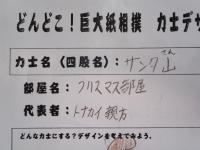 どんどこ！巨大紙相撲 力士デザ
力士名（四股名）：サンタ山
さん
部屋名：クリスマス部屋
代表者：トナカイ親方
どんな力士にする？デザインを考えてみよう。